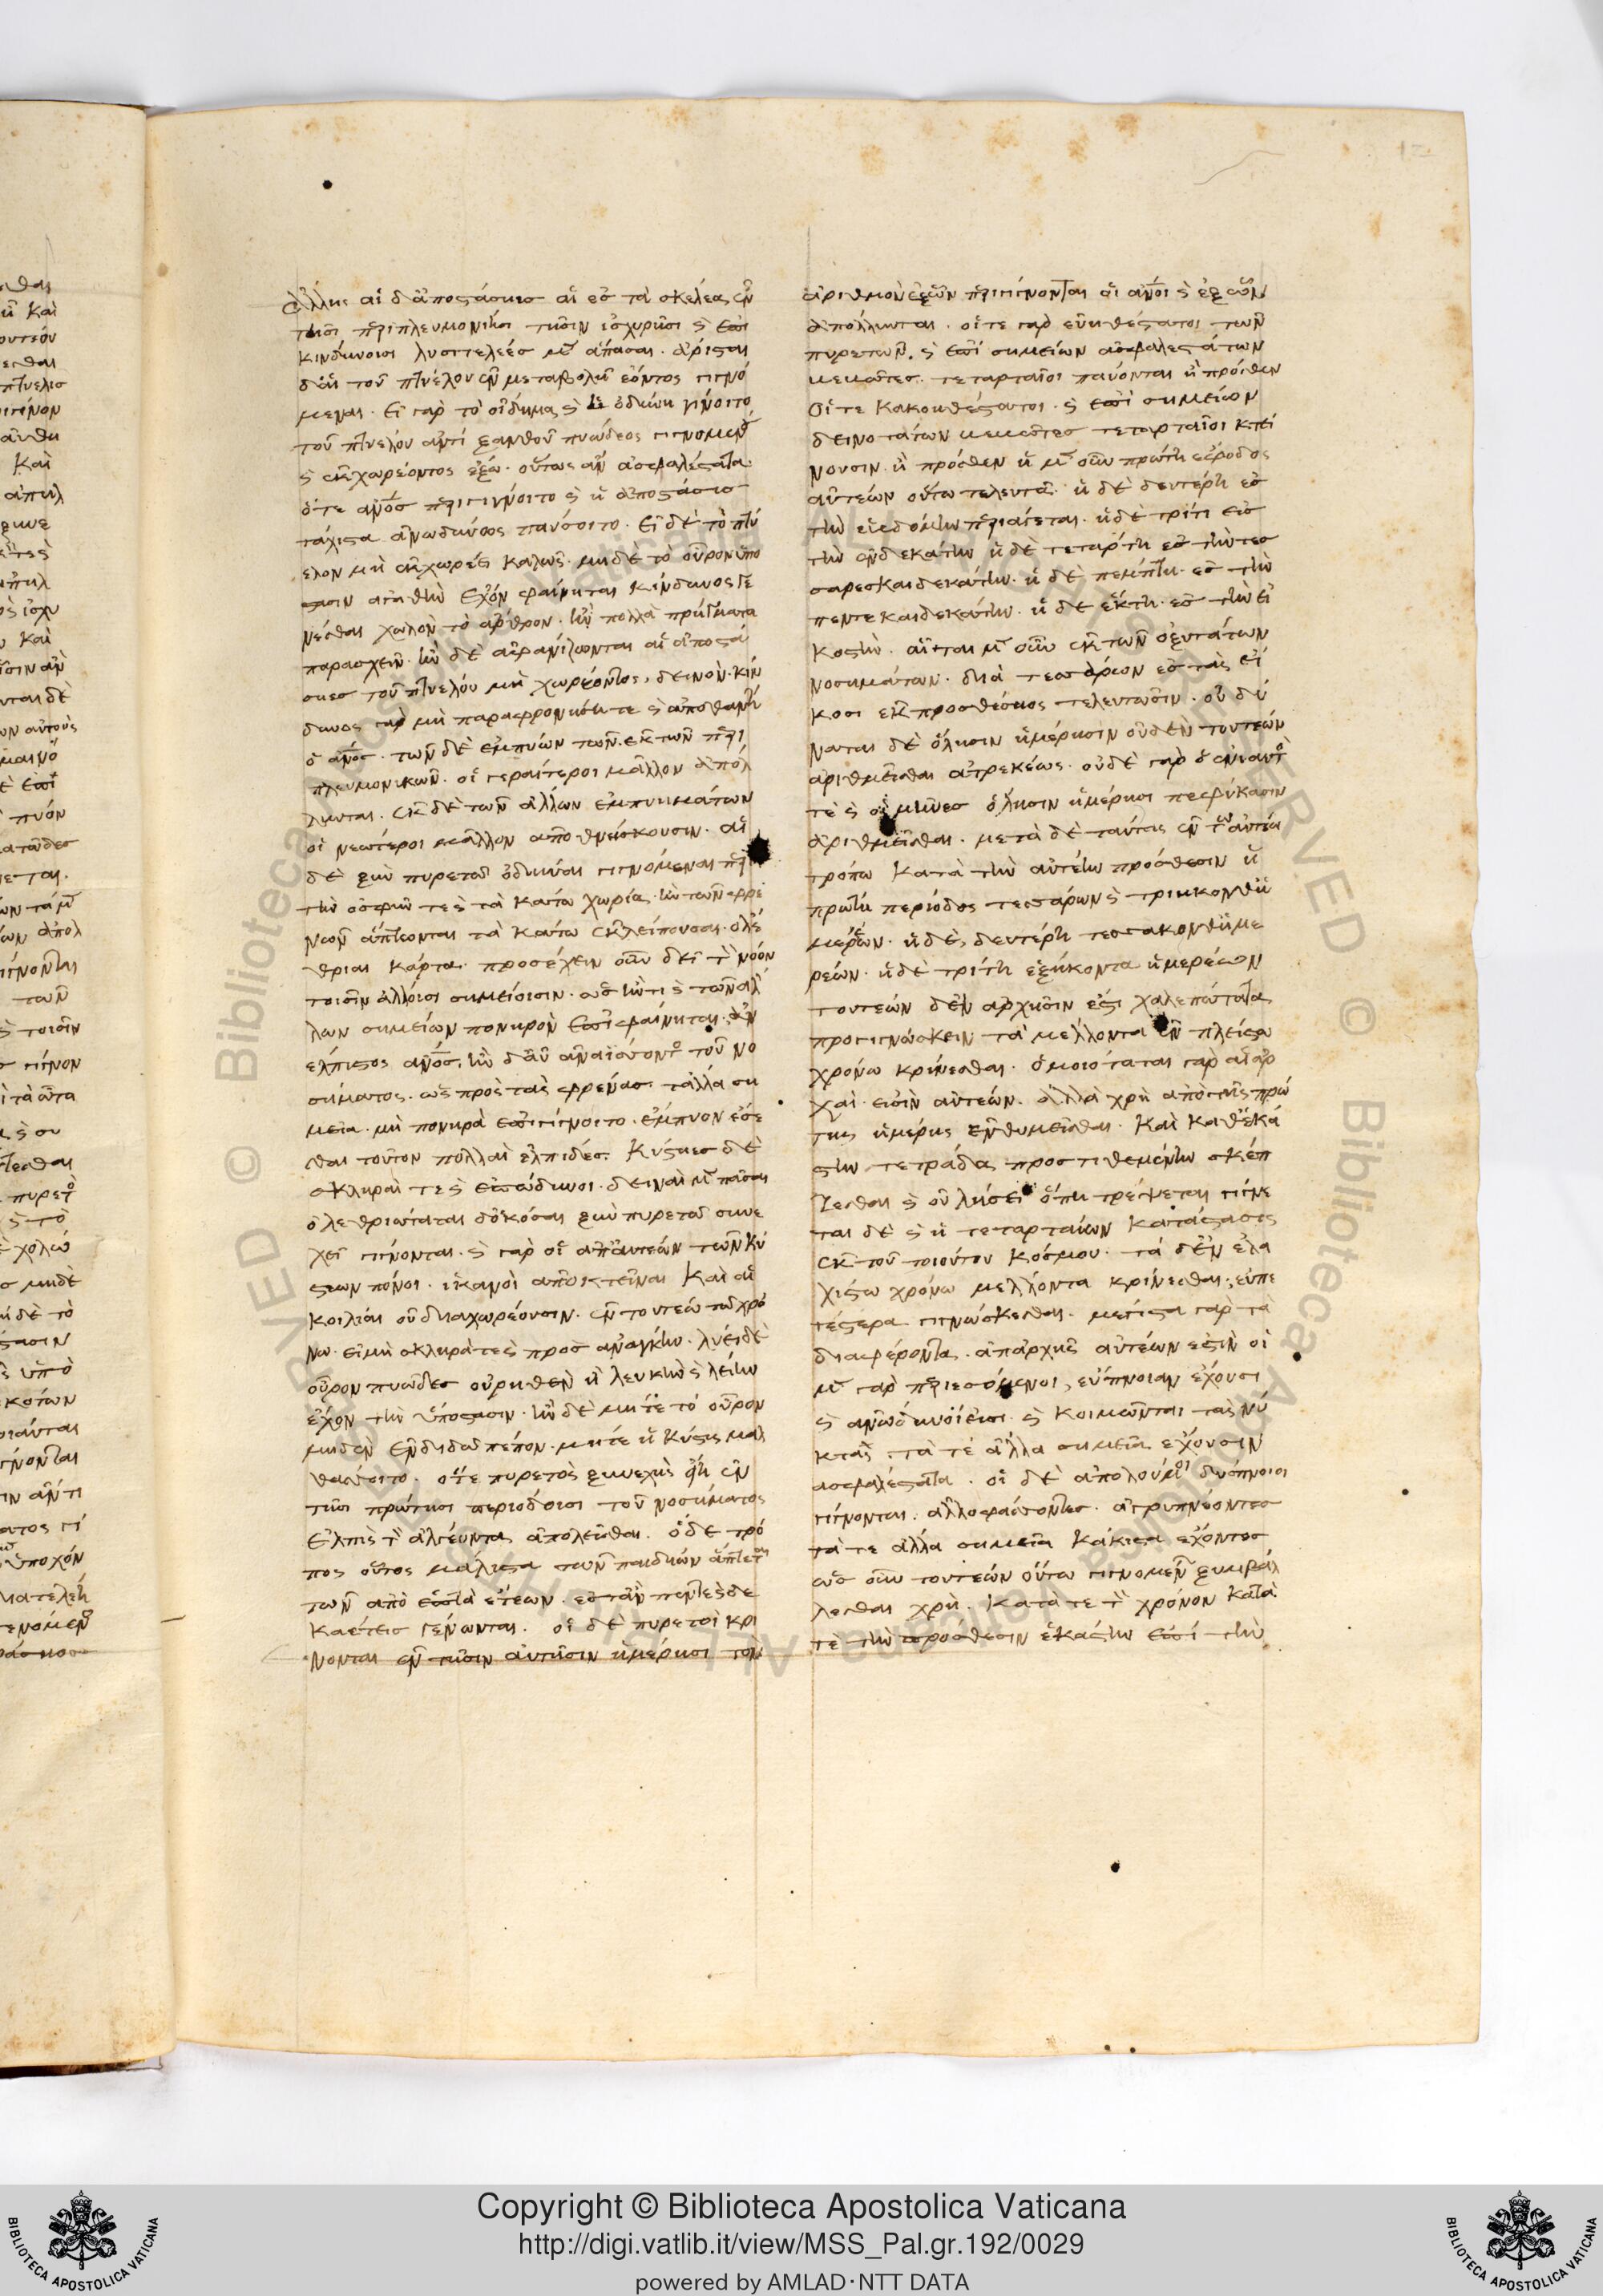 ἄλλης αἱ δ ἀποστάσιες αἱ ἐς τὰ σκέλεα ἐν
τῆσι περιπλευμονίησι τῆσιν ἰσχυρῆσι ϗ ἐπι
κινδύνοισι λυσιτελέες μὲν ἅπασαι. ἄρισται
δ αἱ τοῦ πτυέλου ἐν μεταβολῆ ἐόντος γιγνό
μεναι. Εἰ γὰρ τὸ οἴδημα ϗ ἡ ὀδύνη γίνοιτο
τοῦ πτυέλου ἀντὶ ξανθοῦ πυώδεος γιγνομένου
ϗ ἐκχωρέοντος ἔξω. οὕτως ἂν ἀσφαλέστατα
ὅ τε ἄνος περιγιγνοιτο ϗ ἡ ἀπόστασις
τάχιστα ἀνώδυνος παύσοιτο. Εἰ δὲ τὸ πτύ
ελον μὴ ἐκχωρέει καλῶς. μηδὲ τὸ οὖρον ὑπό
στασιν ἀγαθὴν ἔχον φαίνηται κίνδυνος γε
νέσθαι χωλὸν τὸ ἄρθρον. ἢν πολλὰ πρήγματα
παρασχεῖν. ἢν δὲ ἀφανίζωνται αἱ ἀποστά
σιες τοῦ πτυέλου μὴ χωρέοντος, δεινὸν. κίν
δυνος γὰρ μὴ παραφρονήση τε ϗ ἀποθάνη
ὁ ἄνος. τῶν δὲ ἐμπύων τῶν ἐκ τῶν περι
πλευμονικῶν. οἱ γεραίτεροι μᾶλλον ἀπόλ
λυνται. ἐκ δὲ τῶν ἄλλων ἐμπυημάτων
οἱ νεώτεροι μᾶλλον ἀποθνήσκουσιν. αἱ
δὲ ξὺν πυρετῶ ὀδύναι γιγνόμεναι περὶ
τὴν ὀσφῦν τε ϗ τὰ κάτω χωρία. ἢν τῶν φρε
νῶν ἅπτωνται τὰ κάτω ἐκλείπουσαι. ὀλέ
θριαι κάρτα. προσέχειν οὖν δεῖ τὸν νόον
τοισὶν ἄλλοισι σημείοισιν. ὡς ἤν τι ϗ τῶν ἄλ
λων σημείων πονηρὸν ἐπιφαίνηται. ἀν
έλπιστος ἄνος. ἢν δ αὖ ἀναΐσσοντος τοῦ νο
σήματος. ὡς πρὸς τὰς φρένας. τἄλλα ση
μεῖα. μὴ πονηρὰ ἐπιγίγνοιτο. ἔμπυον ἔσε
σθαι τοῦτον πολλαὶ ἐλπίδες. Κύστιες δὲ
σκληραί τε ϗ ἐπώδυνοι. δειναὶ μὲν πᾶσαι
ὀλεθριώταται δὁκόσαι ξὺν πυρετῶ συνε
χεῖ γίγνονται. ϗ γὰρ οἱ ἀπ αὐτεῶν τῶν κύ
στιων πόνοι. ἱκανοὶ ἀποκτεῖναι Καὶ αἱ
κοιλίαι οὐ διαχωρέουσιν. ἐν τουτέω τῶ χρό
νω. εἰ μὴ σκληρά τε ϗ πρὸς ἀνάγκην. λύει δὲ
οὖρον πυῶδες οὐρηθὲν ἢ λευκὴν ϗ λείην
ἔχον τὴν ὑπόστασιν. ἢν δὲ μήτε τό οὖρον
μηδὲν ἐνδιδῶ πέπον. μήτε ἡ κύστις μαλ
θάσσοιτο. ὅτε πυρετὸς ξυνεχὴς ἦ ἐν
τῆσι πρώτησι περιόδοισι τοῦ νοσήματος
ἐλπὶς τὸν ἀλγέυντα ἀπολεῖσθαι. ὁ δὲ τρό
πος οὗτος μάλιστα τῶν παιδίων ἅπτεται
τῶν ἀπὸ ἑπτὰ ἐτέων. ἔστ ἂν πεντεϗδε
καέτεις γένωνται. οἱ δὲ πυρετοὶ κρί
νονται ἐν τῆσιν αὐτῆσιν ἡμέρησι τὸν
ἀριθμὸν ἐξ ὧν περιγίνονται οἱ ἄνοι ϗ ἐξ ὧν
ἀπόλλυνται. οἵ τε γὰρ εὐηθέστατοι τῶν
πυρετῶν. ϗ ἐπὶ σημείων ἀσφαλεστάτων
μεμαῶτες. τεταρταῖοι παύονται ἢ πρόσθεν
Οἵ τε κακοηθέστατοι. ϗ ἐπὶ σημείων
δεινοτάτων μεμαῶτες τεταρταῖοι κτεί
νουσιν. ἢ πρόσθεν ἡ μὲν οὖν πρώτη ἔφοδος
αὐτεῶν οὕτω τελευτᾶ. ἡ δὲ δευτέρη ἐς
τὴν ἑβδόμην περιάγεται. ἡ δὲ τρίτη εἰς
τὴν ἑνδεκάτην ἡ δὲ τετάρτη ἐς τὴν τεσ
σαρεσκαιδεκάτην. ἡ δὲ πέμπτη. ἐς τὴν
πεντεκαιδεκάτην. ἡ δὲ ἕκτη. ἐς τὴν εἰ
κοστὴν. αὗται μὲν οὖν ἐκ τῶν ὀξυτάτων
νοσημάτων. διὰ τεσσάρων ἐς τὰς εἴ
κοσι ἐκ προσθέσιος τελευτῶσιν. οὐ δύ
ναται δὲ ὅλησιν ἡμέρησιν οὐδὲν τουτεών
ἀριθμέεσθαι ἀτρεκέως. οὐδὲ γὰρ ὁ ἐνιαυτός
τὲ ϗ οἱ μῆνες ὅλησιν ἡμέρησι πεφύκασιν
ἀριθμέεσθαι. μετὰ δὲ ταύτας ἐν τῶ αὐτέω
τρόπω κατὰ τὴν αὐτέην πρόσθεσιν ἡ
πρώτη περίοδος τεσσάρων ϗ τριηκονθη
μερέων. ἡ δὲ, δευτέρη τεσσακονθημε
ρέων. ἡ δὲ τρίτη ἑξήκοντα ἡμερέων
τουτεών δ ἐν ἀρχῆσιν ἐστι χαλεπώτατα
προγιγνώσκειν τὰ μέλλοντα ἐν πλείστω
χρόνω κρίνεσθαι. ὁμοιόταται γὰρ αἱ ἀρ
χαὶ. εἰσὶν αὐτεών. ἀλλὰ χρὴ ἀπὸ τῆς πρώ
της ἡμέρης ἐνθυμεῖσθαι. Καὶ καθ ἑκά
στην τετράδα προστιθεμένην σκέπ
τεσθαι ϗ οὐ λήσει ὅπη τρέψεται γίγνε
ται δὲ ϗ ἡ τεταρταίων κατάστασις
ἐκ τοῦ τοιούτου κόσμου. τὰ δ ἐν ἐλα
χίστω χρόνω μέλλοντα κρίνεσθαι, εὐπε
τέστερα γιγνώσκεσθαι. μέγιστα γὰρ τὰ
διαφέροντα. ἀπ ἀρχῆς αὐτέων ἐστὶν οἱ
μὲν γὰρ περιεσόμενοι, εὔπνοιαν ἔχουσι
ϗ ἀνώδυνοί εἰσι. ϗ κοιμῶνται τὰς νύ
κτας. τὰ τε ἄλλα σημεῖα ἔχουσιν
ἀσφαλέστατα. οἱ δὲ ἀπολούμενοι δύσπνοοι
γίγνονται. ἀλλοφάσσοντες. ἀγρυπνέοντες
τὰ τε ἄλλα σημεῖα κάκιστα ἔχοντες
ὡς οὖν τουτεών οὕτω γιγνομένων ξυμβάλ
λεσθαι χρὴ. Κατὰ τε τὸν χρόνον κατὰ
τὲ τὴν πρόσθεσιν ἑκάστην ἐπί τὴν
Copyright © Biblioteca Apostolica Vaticana
http://digi.vatlib.it/view/MSS_Pal.gr.192/0029
powered by AMLAD·NTT DATA